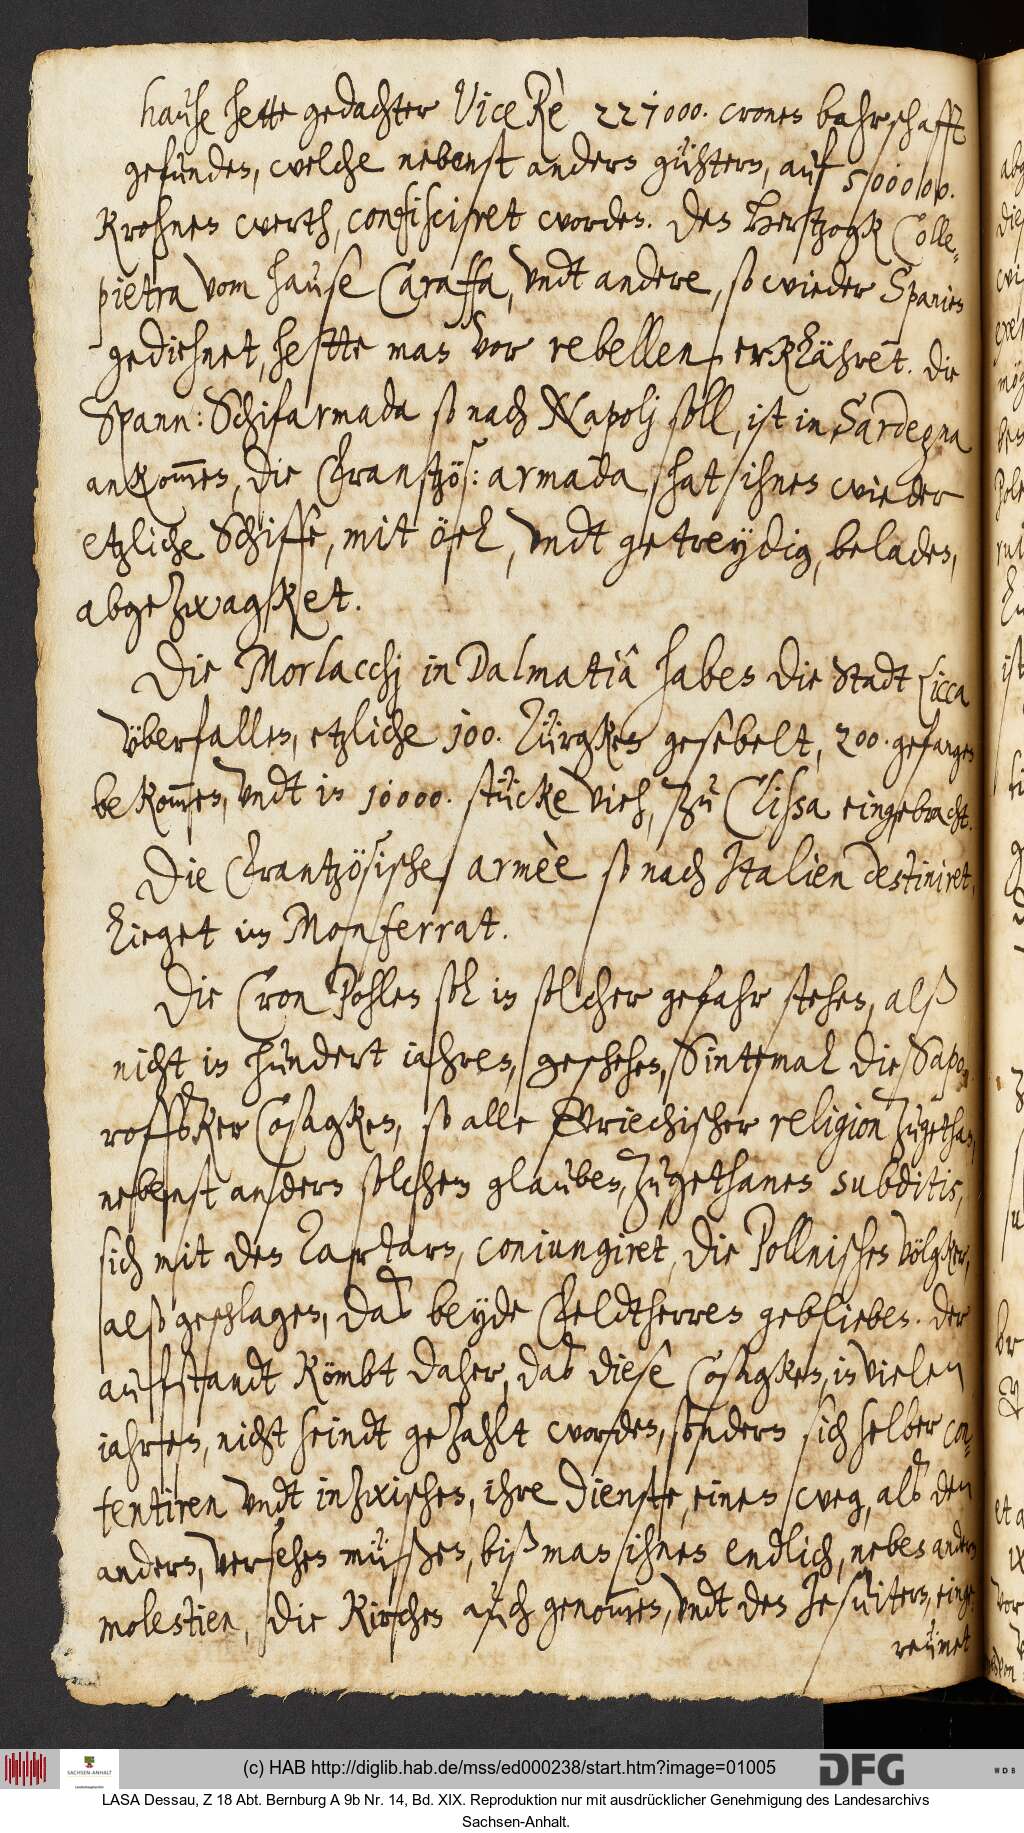 hause hette gedachter Vice Rè 221000. cronen bahrschafft
gefunden, welche nebenst andern gühtern, auf 500000.
Krohnen werth, confisciret worden. Den Hertzogk Colle¬
pietra vom hause Caraffa, vndt andere, so wieder Spanien
gedienet, hette man vor rebellen erklähret. Die
Spann: Schifarmada so nach Napolj soll, ist in Sardegna
ankom̅en, die Frantzös: armada, hat ihnen wieder
etzliche Schiffe, mit öhl, vndt getreydig, beladen,
abgezwagket.
Die Morlacchj in Dalmatiâ haben die Stadt Licca
vberfallen, etzliche 100. Türgken gesebelt, 200. gefangen
bekom̅en, vndt in 10000. stücke vieh, zu Clissa eingebracht.
Die Frantzösische armèe so nach Italien destiniret,
lieget im Monferrat.
Die Cron Pohlen sol in solcher gefahr stehen, alß
nicht in hundert iahren, geschehen, Sintemal die Sapo¬
roffsker Cosagken, so alle Griechischer religion zugethan,
nebenst andern solchem glauben, zugethanen subditis,
sich mit den Tartarn, coniungiret, die Pollnischen völgker,
alß geschlagen, das beyde Feldtherren geblieben. Der
auffstandt kömbt daher, das diese Cosagken, in vielen
iahren, nicht seindt gezahlt worden, sondern sich selber con¬
tentiren vndt inzwischen, ihre dienste, einen weg, als den
andern, versehen müßen, biß man ihnen endlich, neben andern
molestien, die Kirchen auch genom̅en, vndt den Jesuitern, einge¬
reümet
(c) HAB http://diglib.hab.de/mss/ed000238/start.htm?image=01005
SACHSEN-ANHALT
DFG
WDB
LASA Dessau, Z 18 Abt. Bernburg A 9b Nr. 14, Bd. XIX. Reproduktion nur mit ausdrücklicher Genehmigung des Landesarchivs
Sachsen-Anhalt.